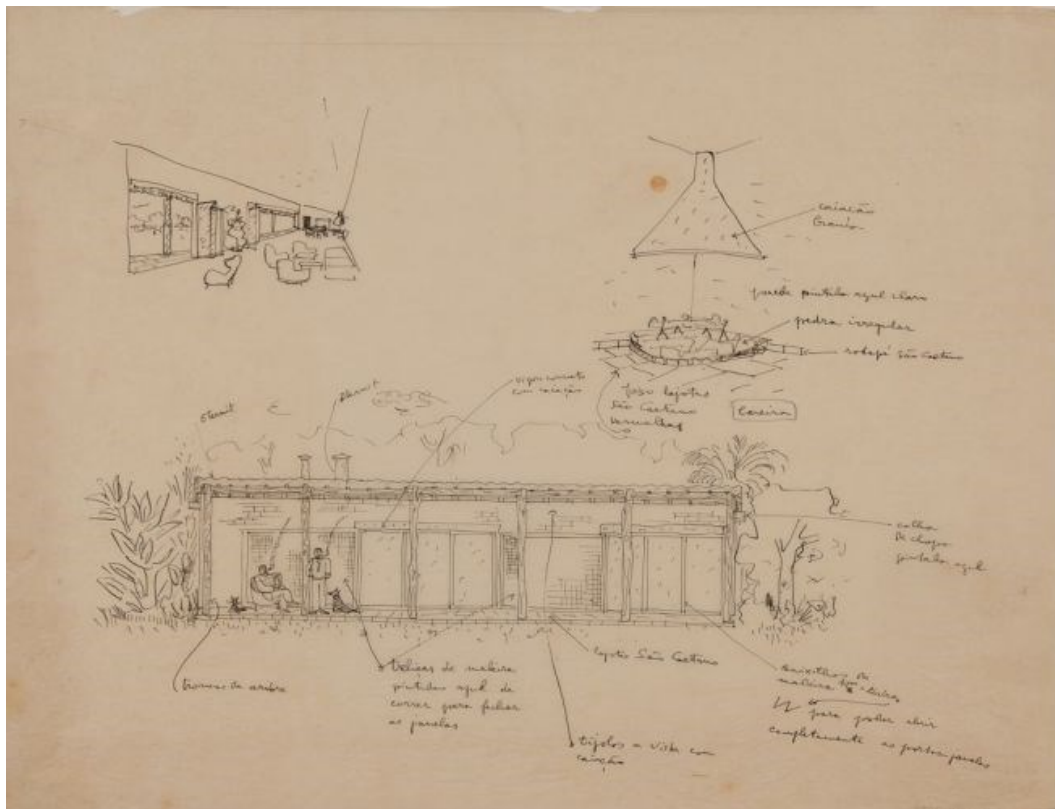 caiação
branco
parede pintada azul claro
pedra irregular
rodapé São Caetano
fogo lajotas
São Caetano
vermelhas
Lareira
Eternit
Eternit
viga concreto
com caiação
calha
de chapa
pintada azul
troncos de
treliças de madeira
pintadas azul de
correr para fechar
as janelas
lajotas São Caetano
tijolos a vista com
caiação
caixilhos de
madeira
para poder abrir
completamente as portas janelas